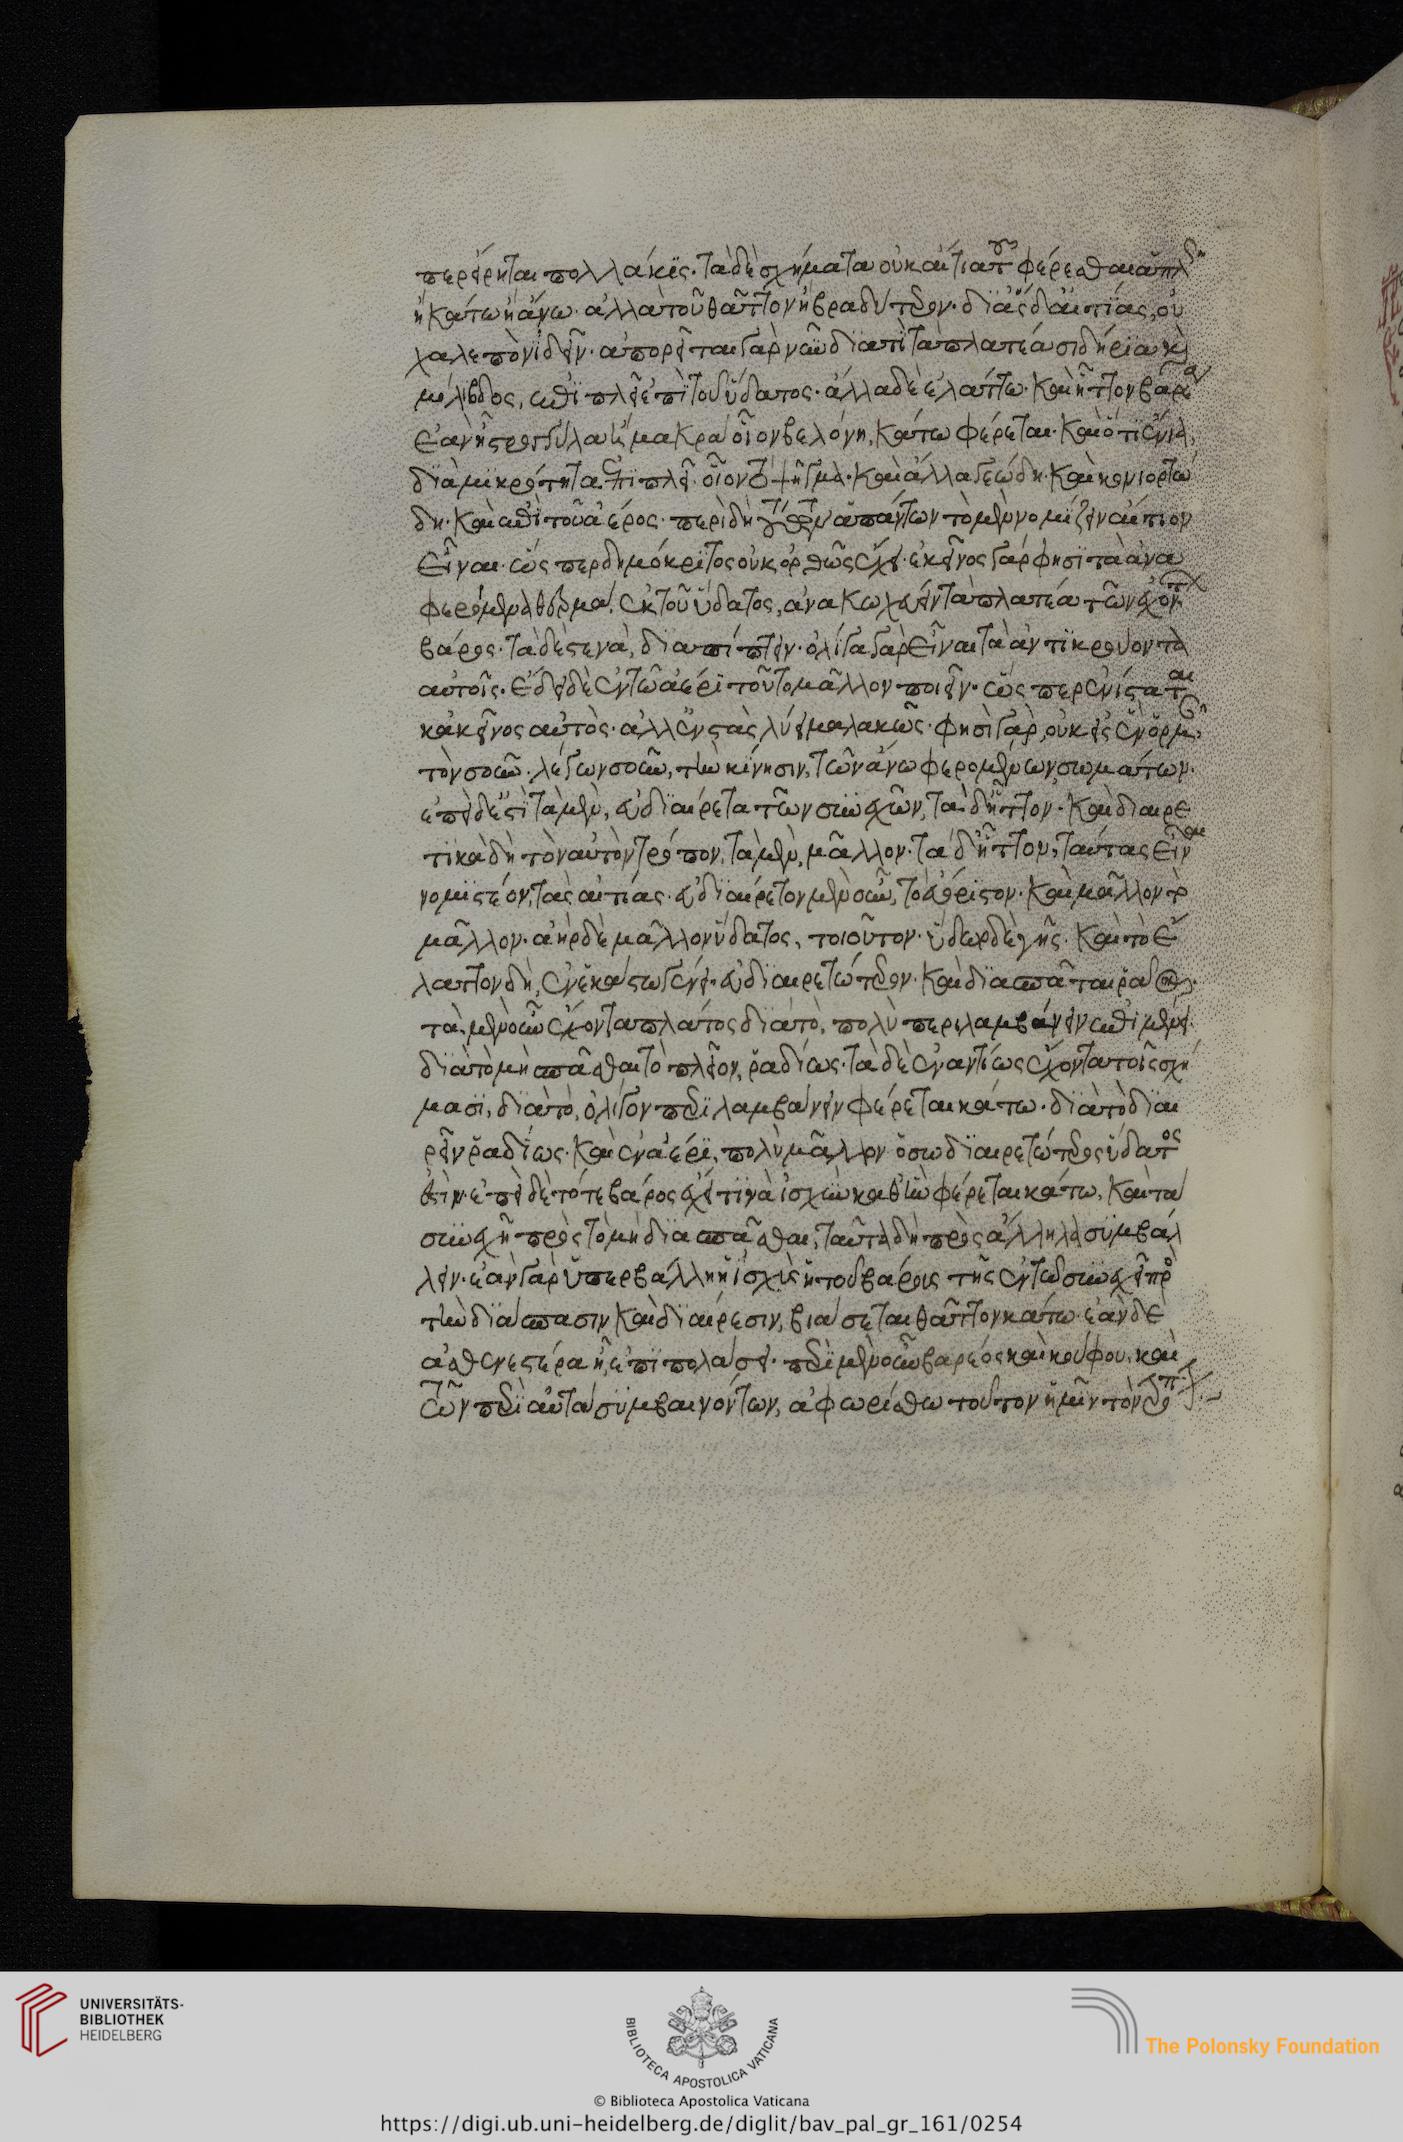 περ είρηται πολλάκις· τὰ δὲ σχήματα οὐκ αἴτια τοῦ φέρεσθαι ἁπλῶς
ἢ κάτω ἢ ἄνω· ἀλλὰ τοῦ θᾶττον ἢ βραδύτερον· δι' ἃς δ' αἰτίας, οὐ
χαλεπὸν ἰδεῖν· ἀπορεῖται γὰρ νῦν διατὶ τὰ πλατέα σιδήρια καὶ
μόλιβδος, ἐπιπλεῖ ἐπὶ τοῦ ὕδατος· ἄλλα δὲ ἐλάττω· καὶ ἧττον βαρέα
ἐὰν ἦ στρογγύλα ἢ μακρὰ οἷον βελόνη, κάτω φέρεται· καὶ ὅτι ἔνια,
διὰ μικρότητα ἐπιπλεῖ· οἷον τὸ ψῆγμα· καὶ ἄλλα γεώδη· καὶ κονιορτώ
δη· καὶ ἐπὶ τοῦ ἀέρος· περὶ δὴ τούτων ἁπάντων τὸ μὲν νομίζειν αἴτιον
εἶναι· ὥς περ δημόκριτος οὐκ ὀρθῶς ἔχει· ἐκεῖνος γάρ φησι τὰ ἄνω
φερόμενα θερμὰ ἐκ τοῦ ὕδατος, ἀνακωχεύειν τὰ πλατέα τῶν ἐχόντων
βάρος· τὰ δὲ στενὰ, διαπίπτειν· ὀλίγα γὰρ εἶναι τὰ ἀντικρούοντα
αὐτοῖς· ἔδει δὲ ἐν τῶ ἀέρι τοῦτο μᾶλλον ποιεῖν· ὥς περ ἐνίσταται
κἀκεῖνος αὐτὸς· ἀλλ' ἐνστὰς λύει μαλακῶς· φησὶ γὰρ, οὐκ εἰς ἓν ὁρμᾶν
τὸν σοῦν· λέγων σοῦν, τὴν κίνησιν, τῶν ἄνω φερομένων σωμάτων·
ἐπεὶ δέ ἐστὶ τὰ μὲν, εὐδιαίρετα τῶν συνεχῶν, τὰ δ' ἧττον· καὶ διαιρε
τικὰ δὴ τὸν αὐτὸν τρόπον, τὰ μὲν, μᾶλλον· τὰ δ' ἧττον, ταύτας εἶναι
νομιστέον, τὰς αἰτίας· εὐδιαίρετον μὲν οὖν, τὸ εὐόριστον· καὶ μᾶλλον τὸ
μᾶλλον· ἀὴρ δὲ μᾶλλον ὕδατος, τοιοῦτον· ὕδωρ δὲ γῆς· καὶ τὸ ἔ
λαττον δὴ, ἐν ἑκάστω γένει· εὐδιαιρετώτερον· καὶ διασπᾶται ρᾶον·
τὰ μὲν οὖν ἔχοντα πλάτος διὰ τὸ, πολὺ περιλαμβάνειν ἐπιμένει·
διὰ τὸ μὴ σπᾶσθαι τὸ πλεῖον, ῥαδίως· τὰ δὲ ἐναντίως ἔχοντα τοῖς σχή
μασι, διὰ τὸ, ὀλίγον περιλαμβάνειν φέρεται κάτω· διὰ τὸ διαι
ρεῖν ῥαδίως· καὶ ἐν ἀέρι, πολὺ μᾶλλον ὅσω διαιρετώτερος ὕδατος
ἐστὶν· ἐπεὶ δὲ τό τε βάρος ἔχει τινὰ ἰσχὺν καθ' ἣν φέρεται κάτω, καὶ τὰ
συνεχῆ πρὸς τὸ μὴ διασπᾶσθαι, ταῦτα δὴ πρὸς ἄλληλα συμβάλ
λειν· ἐὰν γὰρ ὑπερβάλλη ἡ ἰσχὺς ἡ τοῦ βάρους τῆς ἐν τῶ συνεχεῖ πρὸς
τὴν διάσπασιν καὶ διαίρεσιν, βιάσεται θᾶττον κάτω· ἐὰν δὲ
ἀσθενεστέρα ἦ, ἐπιπολάσει· περὶ μὲν οὖν βαρέος καὶ κούφου, καὶ
τῶν περὶ αὐτὰ συμβαινόντων, ἀφωρίσθω τοῦτον ἡμῖν τὸν τρόπον
UNIVERSITÄTS-
BIBLIOTHEK
HEIDELBERG
BIBLIOTECA APOSTOLICA VATICANA
The Polonsky Foundation
© Biblioteca Apostolica Vaticana
https://digi.ub.uni-heidelberg.de/diglit/bav_pal_gr_161/0254